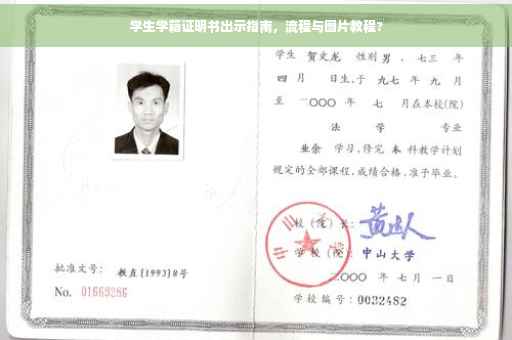 学生学籍证明书出示指南，流程与图片教程？
学生 贺文龙 性别 男 、七三 年
四 月 日生,于 九七 年 九 月
至 二〇〇〇 年 七 月在本校(院)
法 学 专业
业余 学习,修完 本 科教学计划
规定的全部课程,成绩合格,准予毕业。
校（院）长：
学校（院）：中山大学
二〇〇〇 年 七 月 一 日
学校编号：0032482
批准文号： 教直[1993]8号
No. 01669286